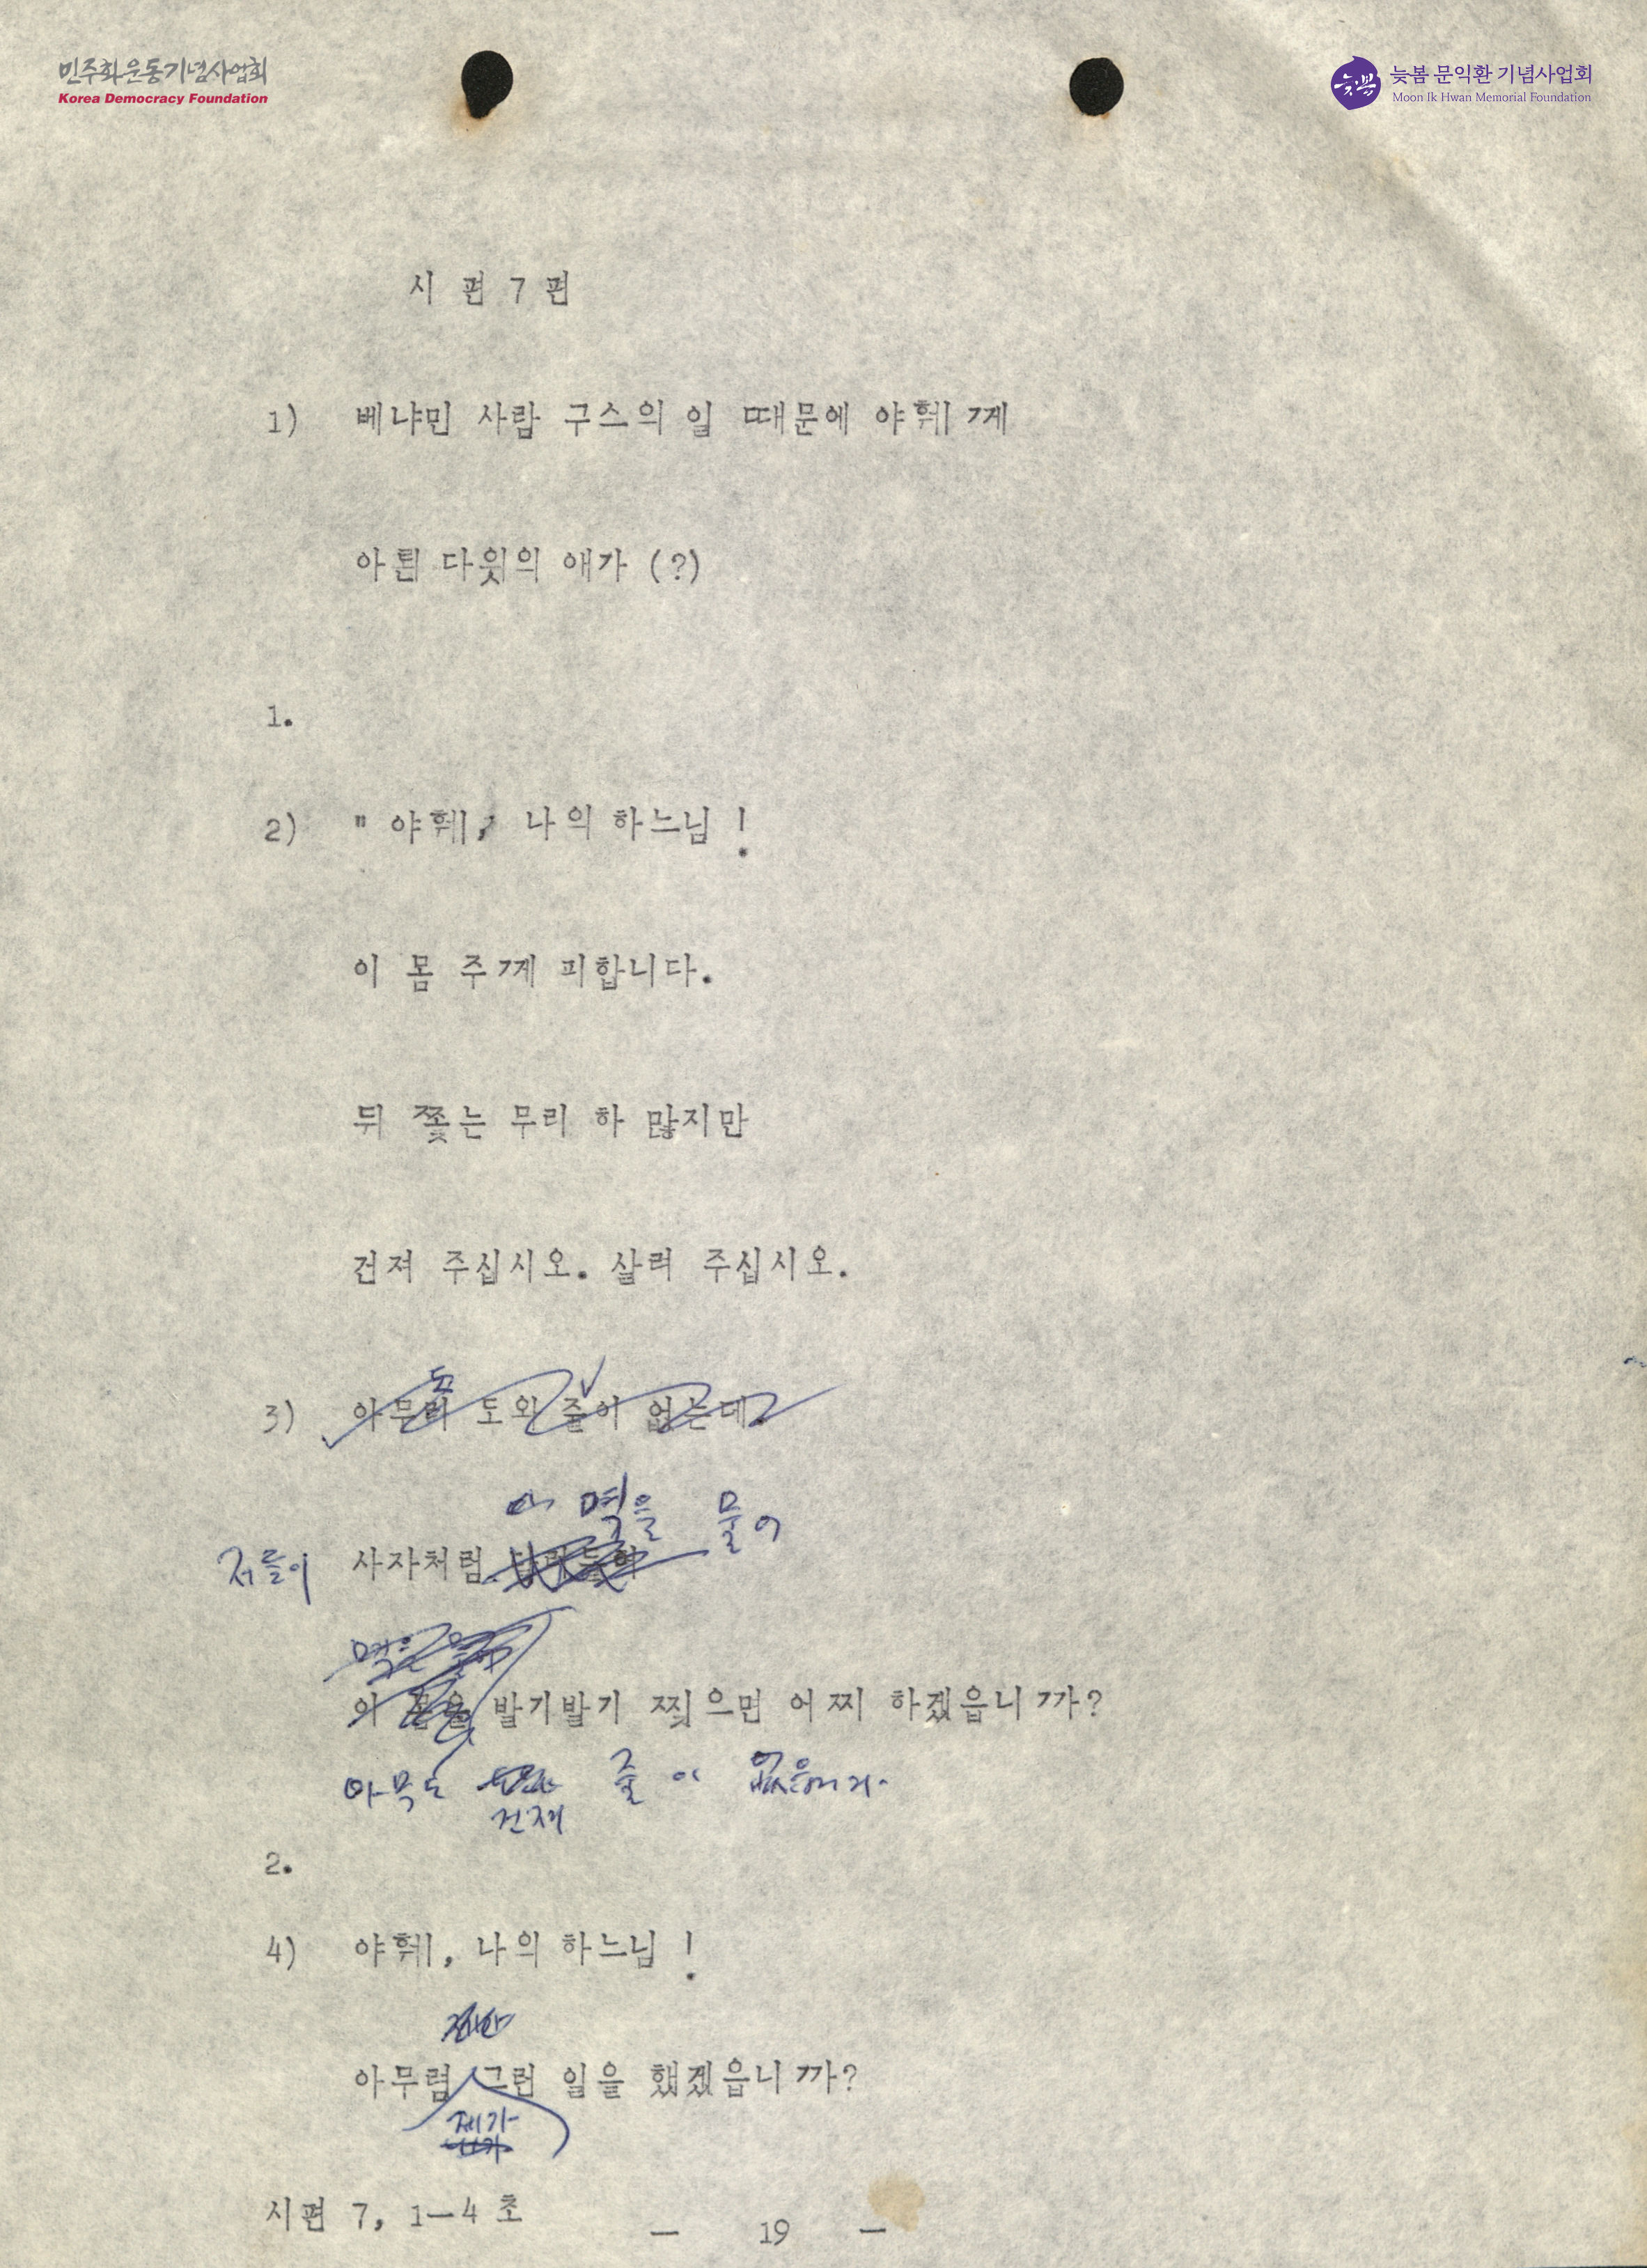 민주화운동기념사업회
Korea Democracy Foundation
늦봄
늦봄 문익환 기념사업회
Moon Ik Hwan Memorial Foundation
시 편 7 편
1) 베냐민 사람 구스의 일 때문에 야훼께
아뢴 다윗의 애가 (?)
1.
2) " 야훼, 나의 하느님 !
이 몸 주께 피합니다.
뒤 쫓는 무리 하 많지만
건져 주십시오. 살려 주십시오.
3) 아무리 도와 줄이 없는데
이 멱을 물어
저들이 사자처럼
멱을
이 몸을 발기발기 찢으면 어찌 하겠읍니까?
아무도 줄 이 없읍니다.
건져
2.
4) 야훼, 나의 하느님 !
아무렴 그런 일을 했겠읍니까?
제가
시편 7, 1-4 초
- 19 -